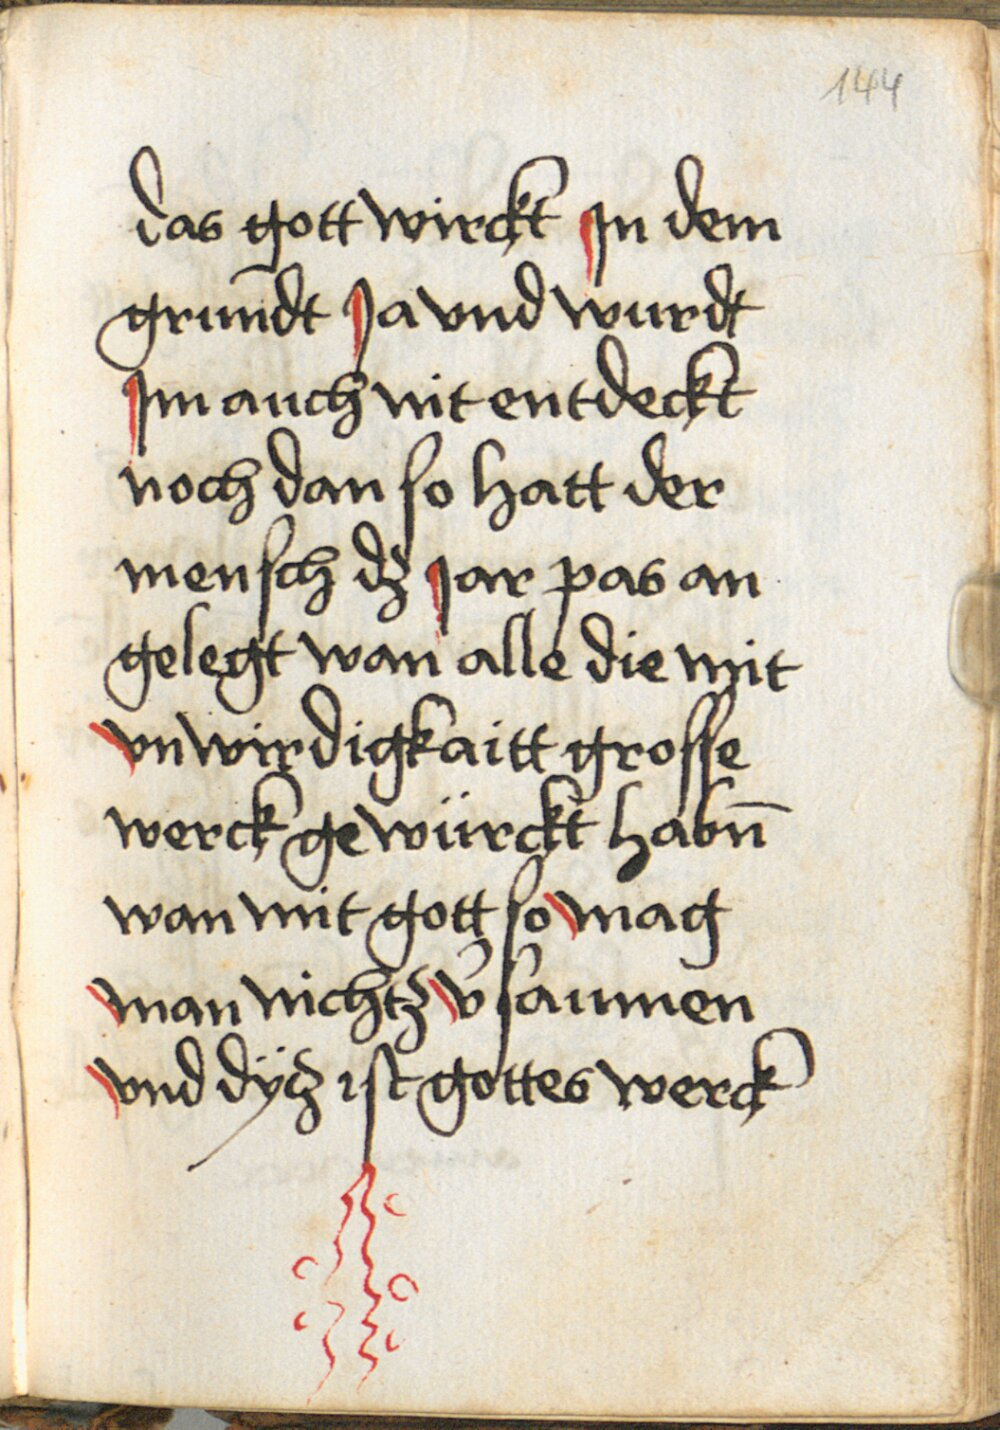 144
das gott wirckt Jn dem
grun̄dt Ja vnd wurdt
Jm auch nit entdeckt
noch dan so hatt der
mensch dz Jar pas an
gelegt wan alle die mit
vnwirdigkaitt grosse
werck gewürckt habn̄
wan mit gott so mag
man nichtz v̓saumen
vnd dÿtz ist gottes werck